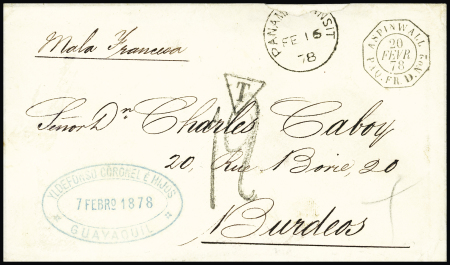 PANAMA TRANSIT
FE 15
78
ASPINWALL
20
FEVR
78
PAQ. FR. D. Nº2
Mala Francesa
T
Señor Dn Charles Caboy
20, Rue Borie, 20
Burdeos
12
ILDEFONSO CORONEL É HIJOS
7 FEBRO 1878
GUAYAQUIL